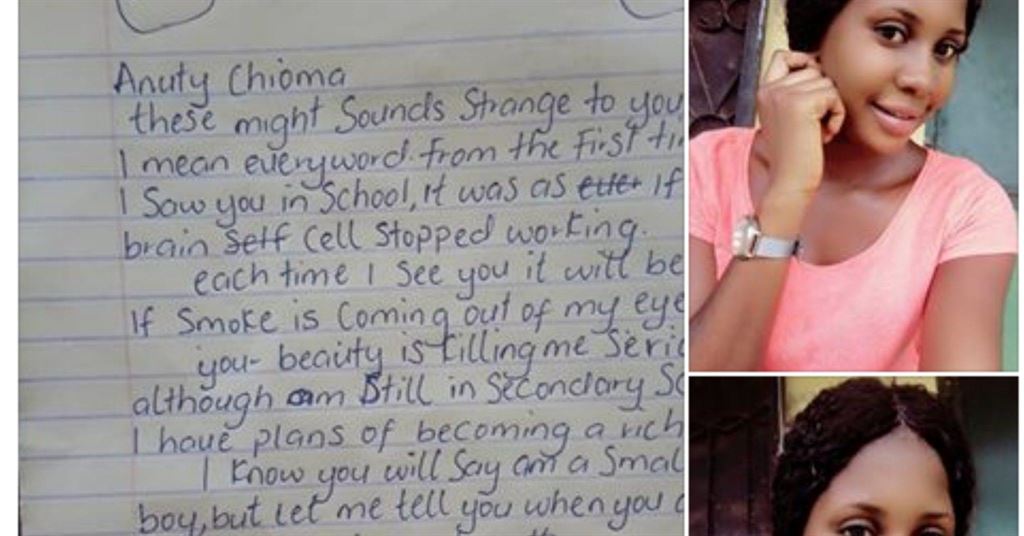 Anuty Chioma
these might Sounds Strange to you
I mean everyword. from the First
I Saw you in School, it was as If
brain Cell Stopped working.
each time I See you it will be
If Smoke is Coming out of my eye
you- beauty is killing me
although am Still in Secondary
I have plans of becoming a rich
I Know you will Say am a Smal
boy, but let me tell you when you